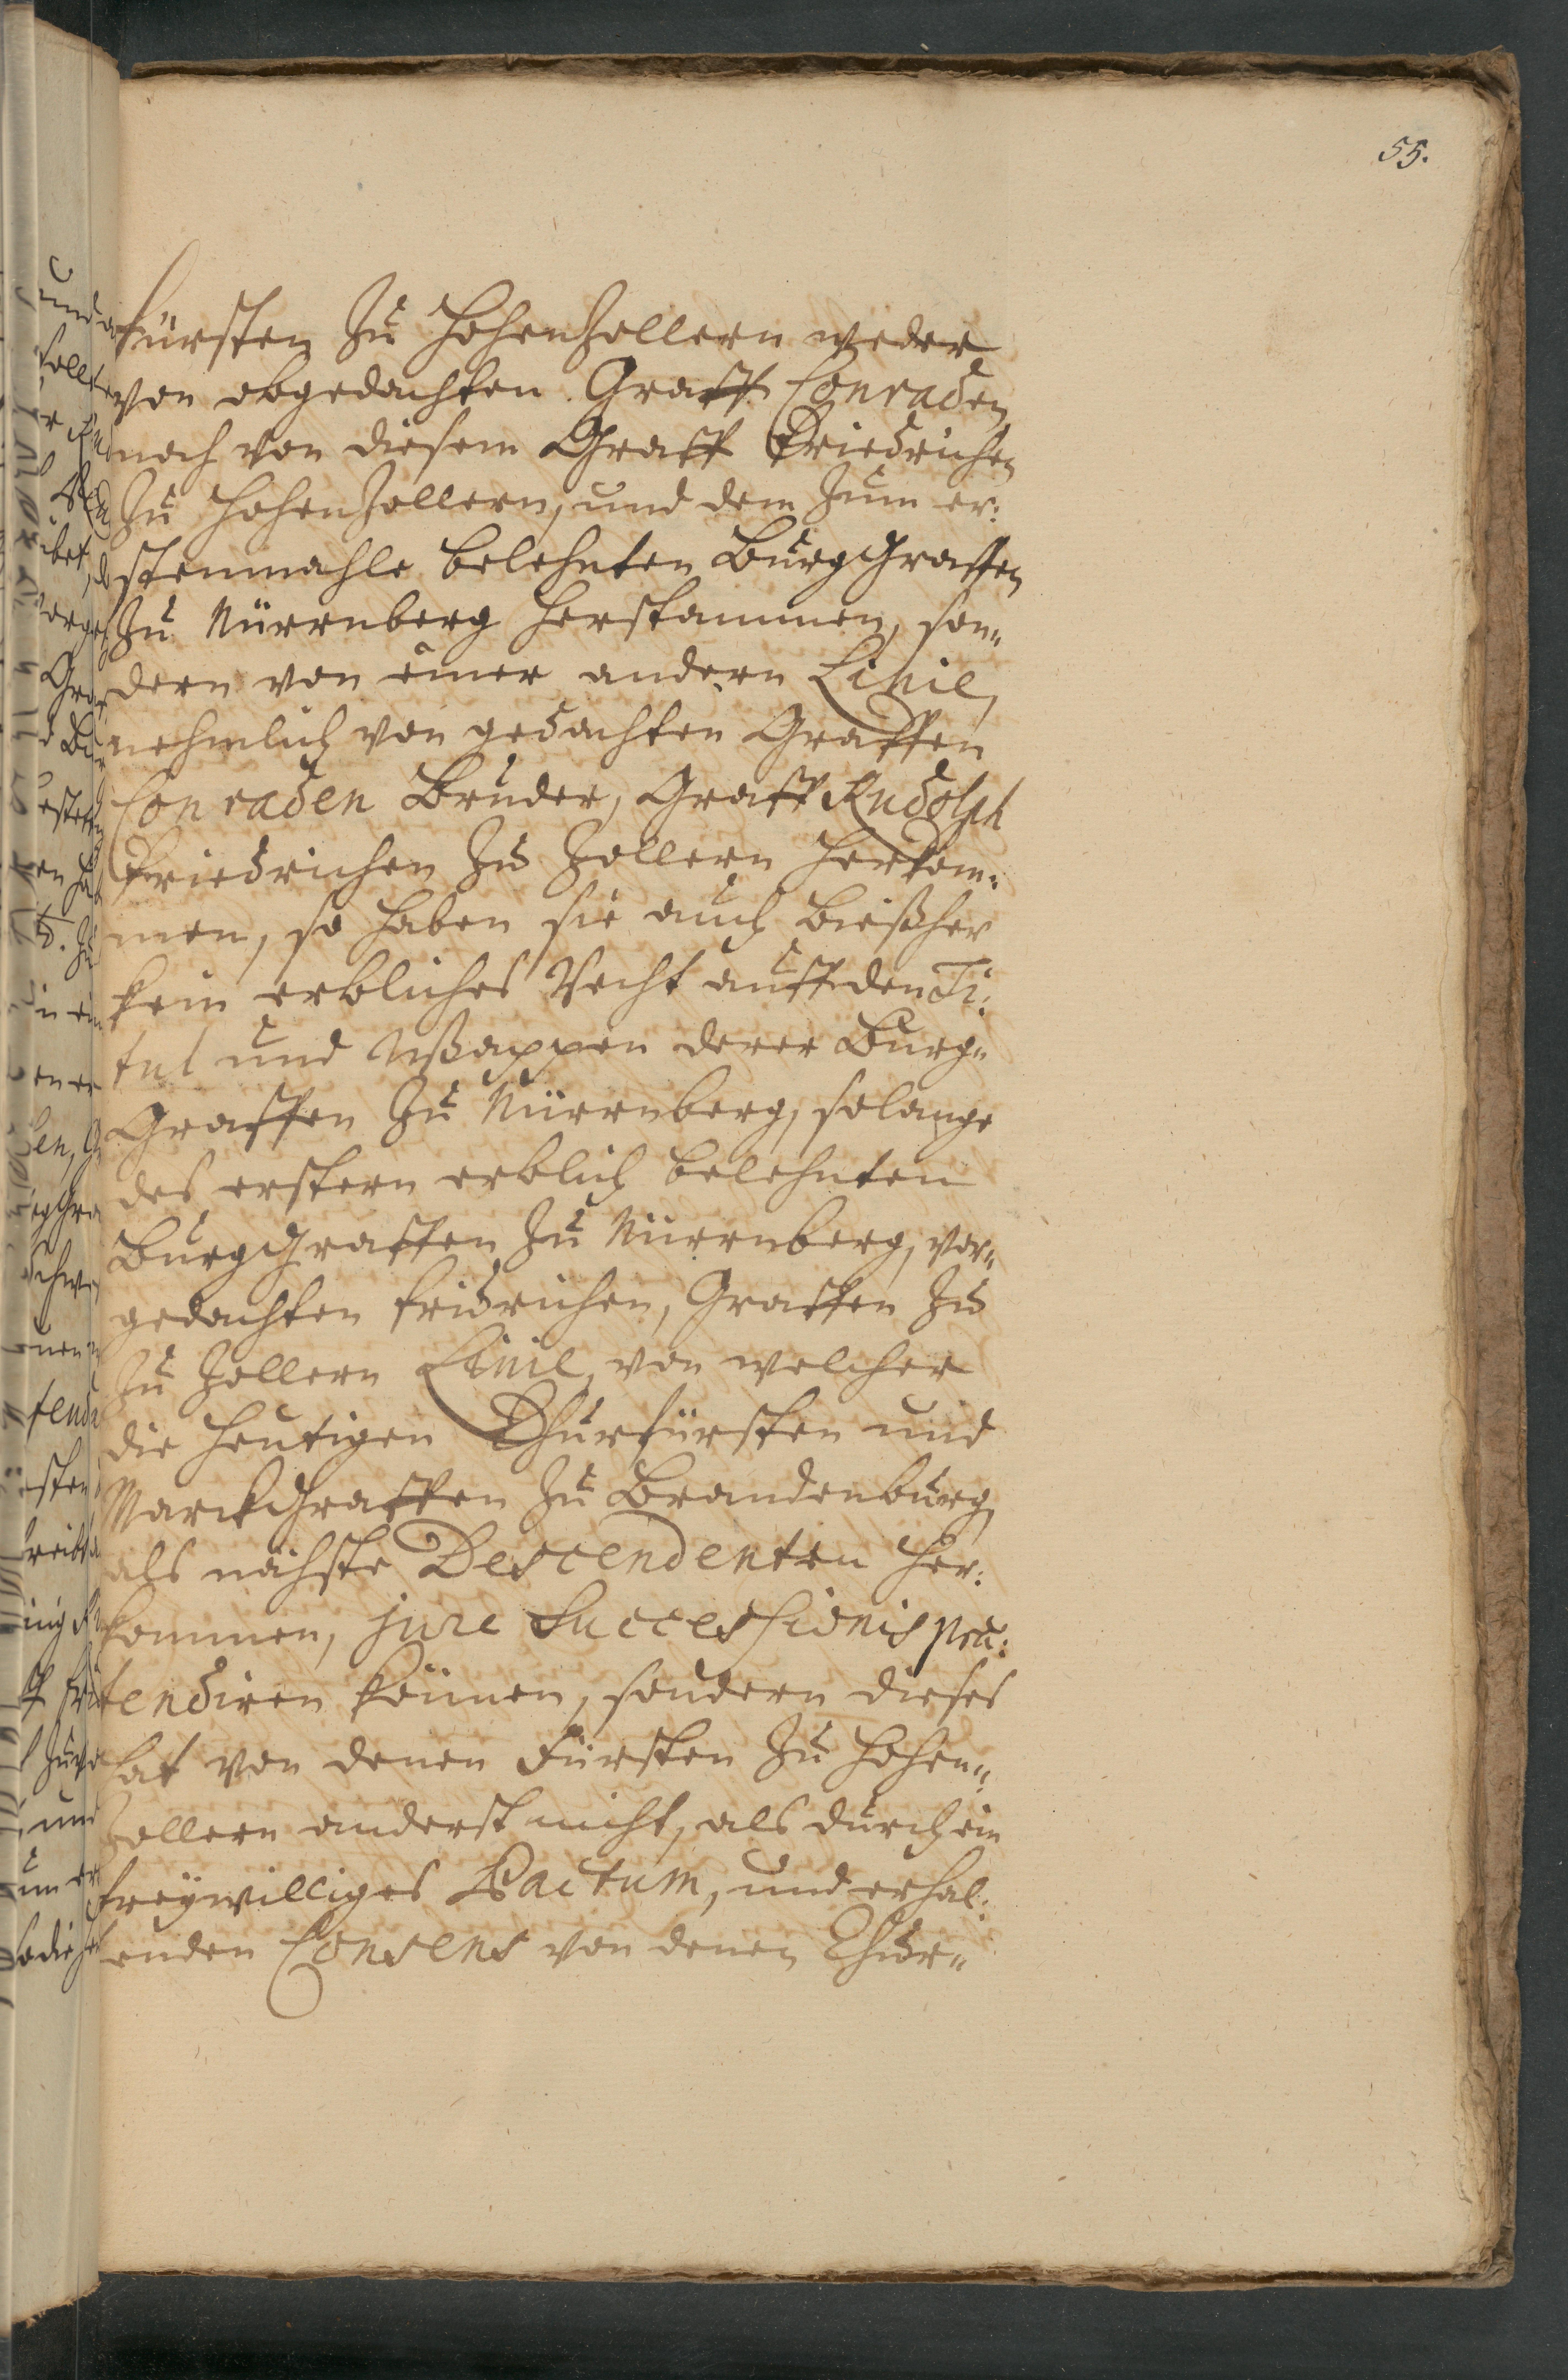 55.
fürsten zu Hohenzollern weder
von obgedachten Graff Conraden
noch von diesem Graff Friedrichen
zu Hohenzollern, und dem zum er:
stenmahle belehnten BurgGraffen
zu Nürrnberg herstammen, son„
dern von einer andern Linie,
nehmlich von gedachten Graffen
Conraden Bruder, Graff Rudolph
Friedrichen zu Zollern herkom:
men, so haben sie auch bißher
kein erbliches Recht auff den Ti:
tul und Waappen derer Burg„
Graffen zu Nürrnberg, solange
des erstern erblich belehnten
BurgGraffen zu Nürrnberg, vor„
gedachten fridrichen, Graffen zu
zu Zollern Linie, von welcher
die heutigen Churfürsten und
MarckGraffen zu Brandenburg,
als nächste Descendenten her:
kommen, jure Successionis præ:
tendiren können, sondern dieses
hat von denen Fürsten zu Hohen„
zollern anderst nicht, als durch ein
freÿwilliges Pactum, und erhal:
enden Consens von denen Chur„